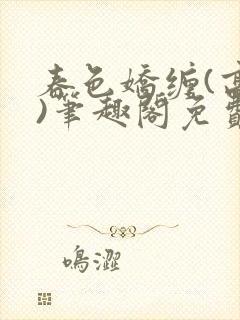 春色嬌纏(高
)筆趣閣免費
鳴澀